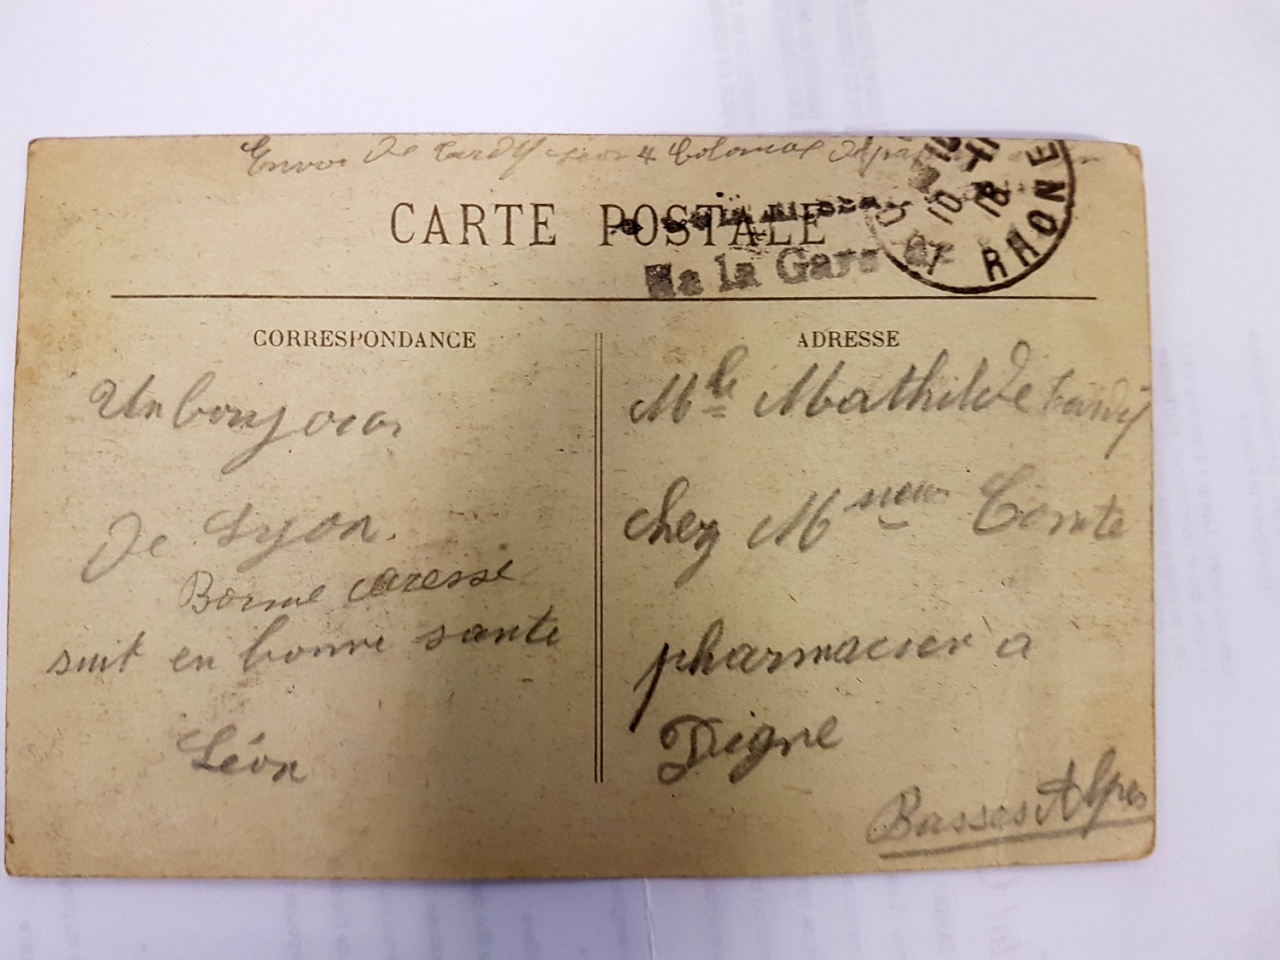 Envoi de Tardy Léon 4 Colonial
CARTE POSTALE
la Gare de
10
18
RHONE
CORRESPONDANCE
Un bonjour
de Lyon.
Bonne caresse
suit en bonne sante
Léon
ADRESSE
Mlle Mathilde Tardy
chez Msieur Comte
pharmacien a
Digne
Basses Alpes